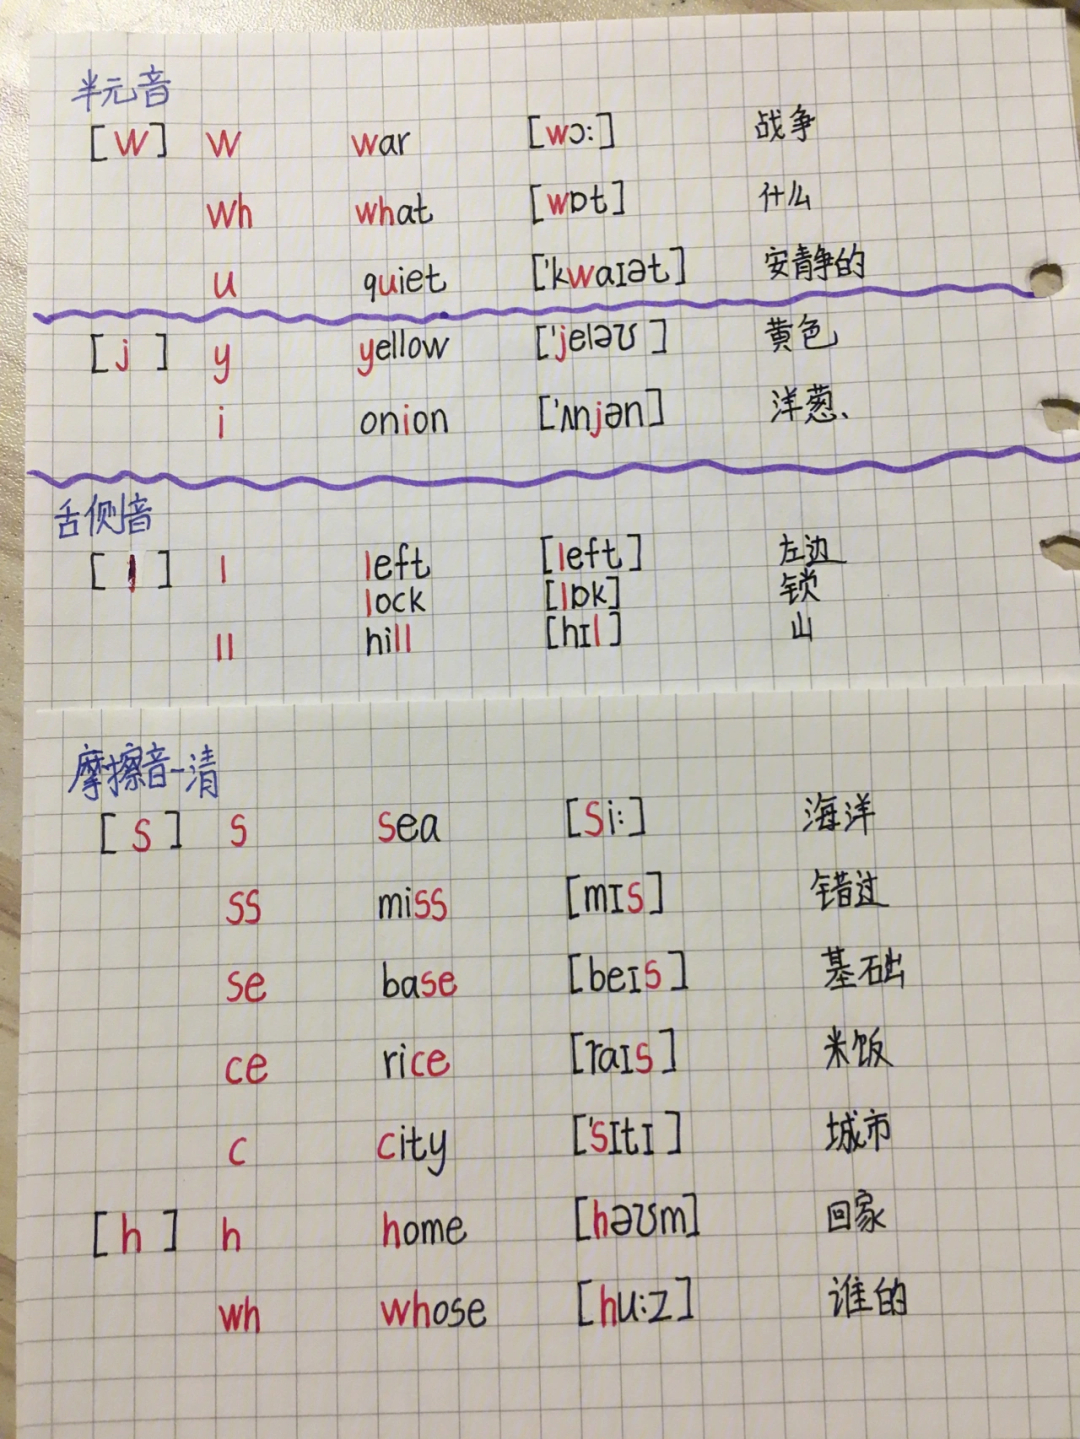 半元音
[w] w war [wɔ:] 战争
wh what [wɒt] 什么
u quiet ['kwaɪət] 安静的
[j] y yellow ['jeləʊ] 黄色
i onion ['ʌnjən] 洋葱、
舌侧音
[l] l left [left] 左边
lock [lɒk] 锁
ll hill [hɪl] 山
摩擦音-清
[s] s sea [si:] 海洋
ss miss [mɪs] 错过
se base [beɪs] 基础
ce rice [raɪs] 米饭
c city ['sɪtɪ] 城市
[h] h home [həʊm] 回家
wh whose [hu:z] 谁的